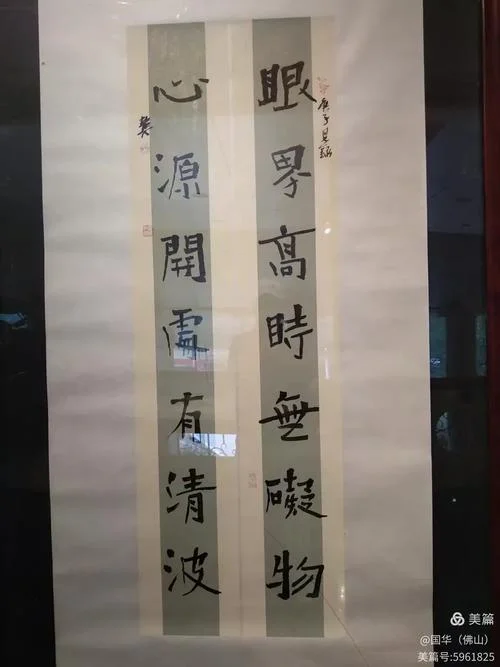 眼界高時無礙物
心源開處有清波
庚子
美篇
@国华（佛山）
美篇号:5961825